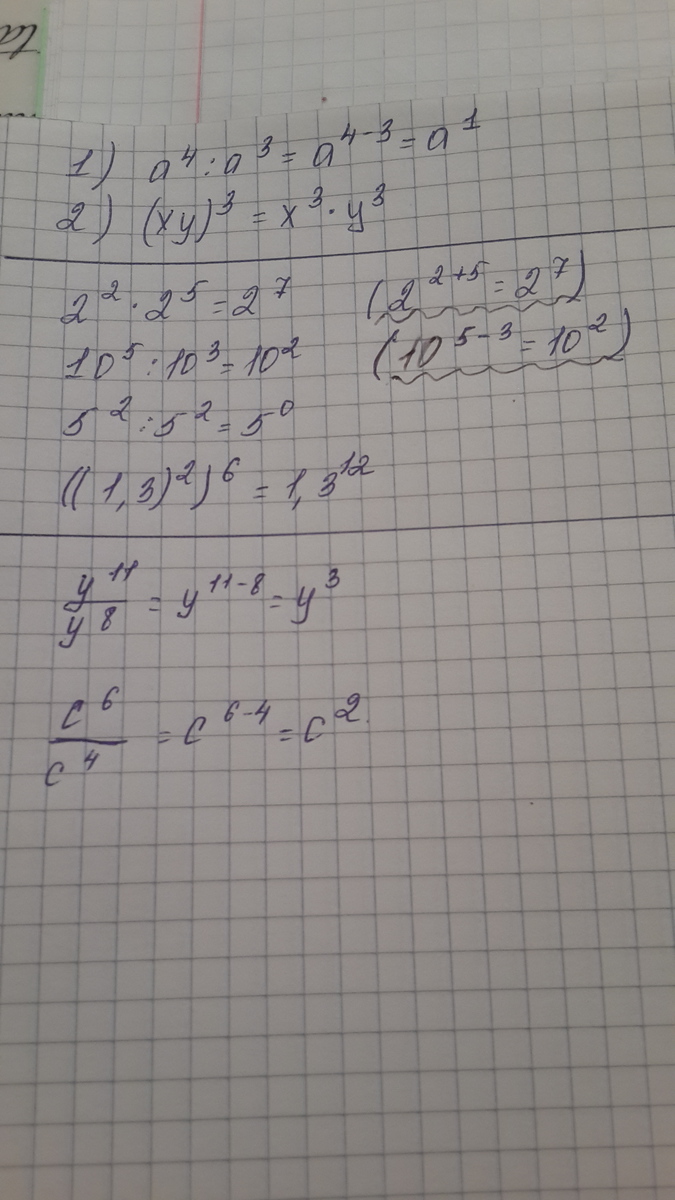 1) a⁴ : a³ = a⁴⁻³ = a¹
2) (xy)³ = x³ · y³
2² · 2⁵ = 2⁷ (2²⁺⁵ = 2⁷)
10⁵ : 10³ = 10² (10⁵⁻³ = 10²)
5² : 5² = 5⁰
((1,3)²)⁶ = 1,3¹²
y¹¹/y⁸ = y¹¹⁻⁸ = y³
c⁶/c⁴ = c⁶⁻⁴ = c²